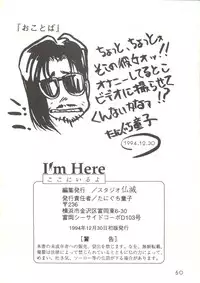 「おことば」
ちょっと、ちょっとォ
そこの彼女ォッ!!
オナニーしてるとこ
ビデオに撮らせて
くんないかなぁ!!
たにぐち童子
1994.12.30
I'm Here
ここにいるよ
編集発行/スタジオ仏滅
発行責任者/たにぐち童子
〒236
横浜市金沢区富岡東6-30
富岡シーサイドコーポD103号
1994年12月30日初版発行
【警告】
60